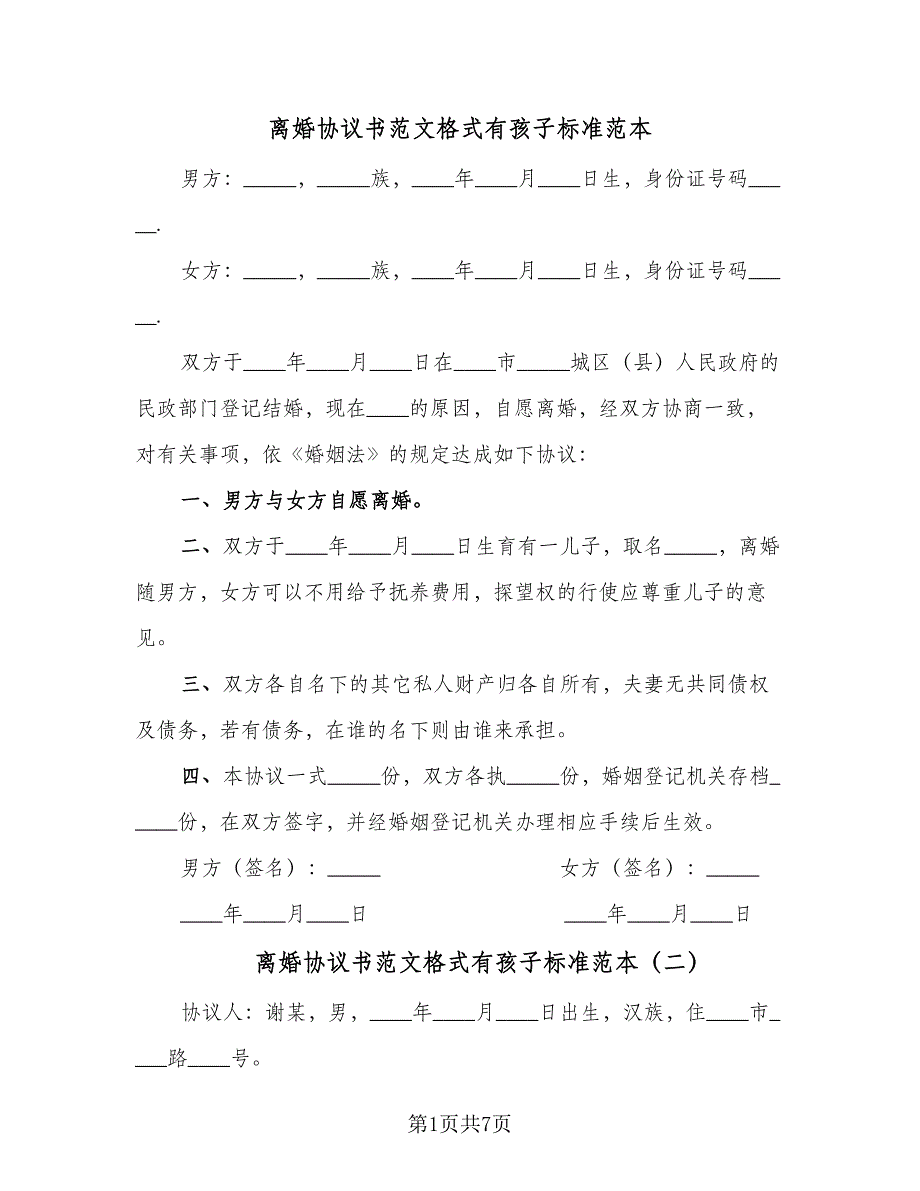 离婚协议书范文格式有孩子标准范本
男方：_____，_____族，____年____月____日生，身份证号码___
__.
女方：_____，_____族，____年____月____日生，身份证号码___
__.
双方于____年____月____日在____市_____城区（县）人民政府的
民政部门登记结婚，现在____的原因，自愿离婚，经双方协商一致，
对有关事项，依《婚姻法》的规定达成如下协议：
一、男方与女方自愿离婚。
二、双方于____年____月____日生育有一儿子，取名_____，离婚
随男方，女方可以不用给予抚养费用，探望权的行使应尊重儿子的意
见。
三、双方各自名下的其它私人财产归各自所有，夫妻无共同债权
及债务，若有债务，在谁的名下则由谁来承担。
四、本协议一式_____份，双方各执_____份，婚姻登记机关存档_
____份，在双方签字，并经婚姻登记机关办理相应手续后生效。
男方（签名）：_____ 女方（签名）：_____
____年____月____日 ____年____月____日
离婚协议书范文格式有孩子标准范本（二）
协议人：谢某，男，____年____月____日出生，汉族，住____市_
___路____号。
第1页共7页